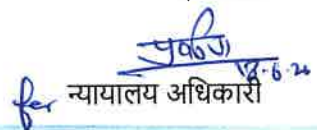 18-6-26
for न्यायालय अधिकारी